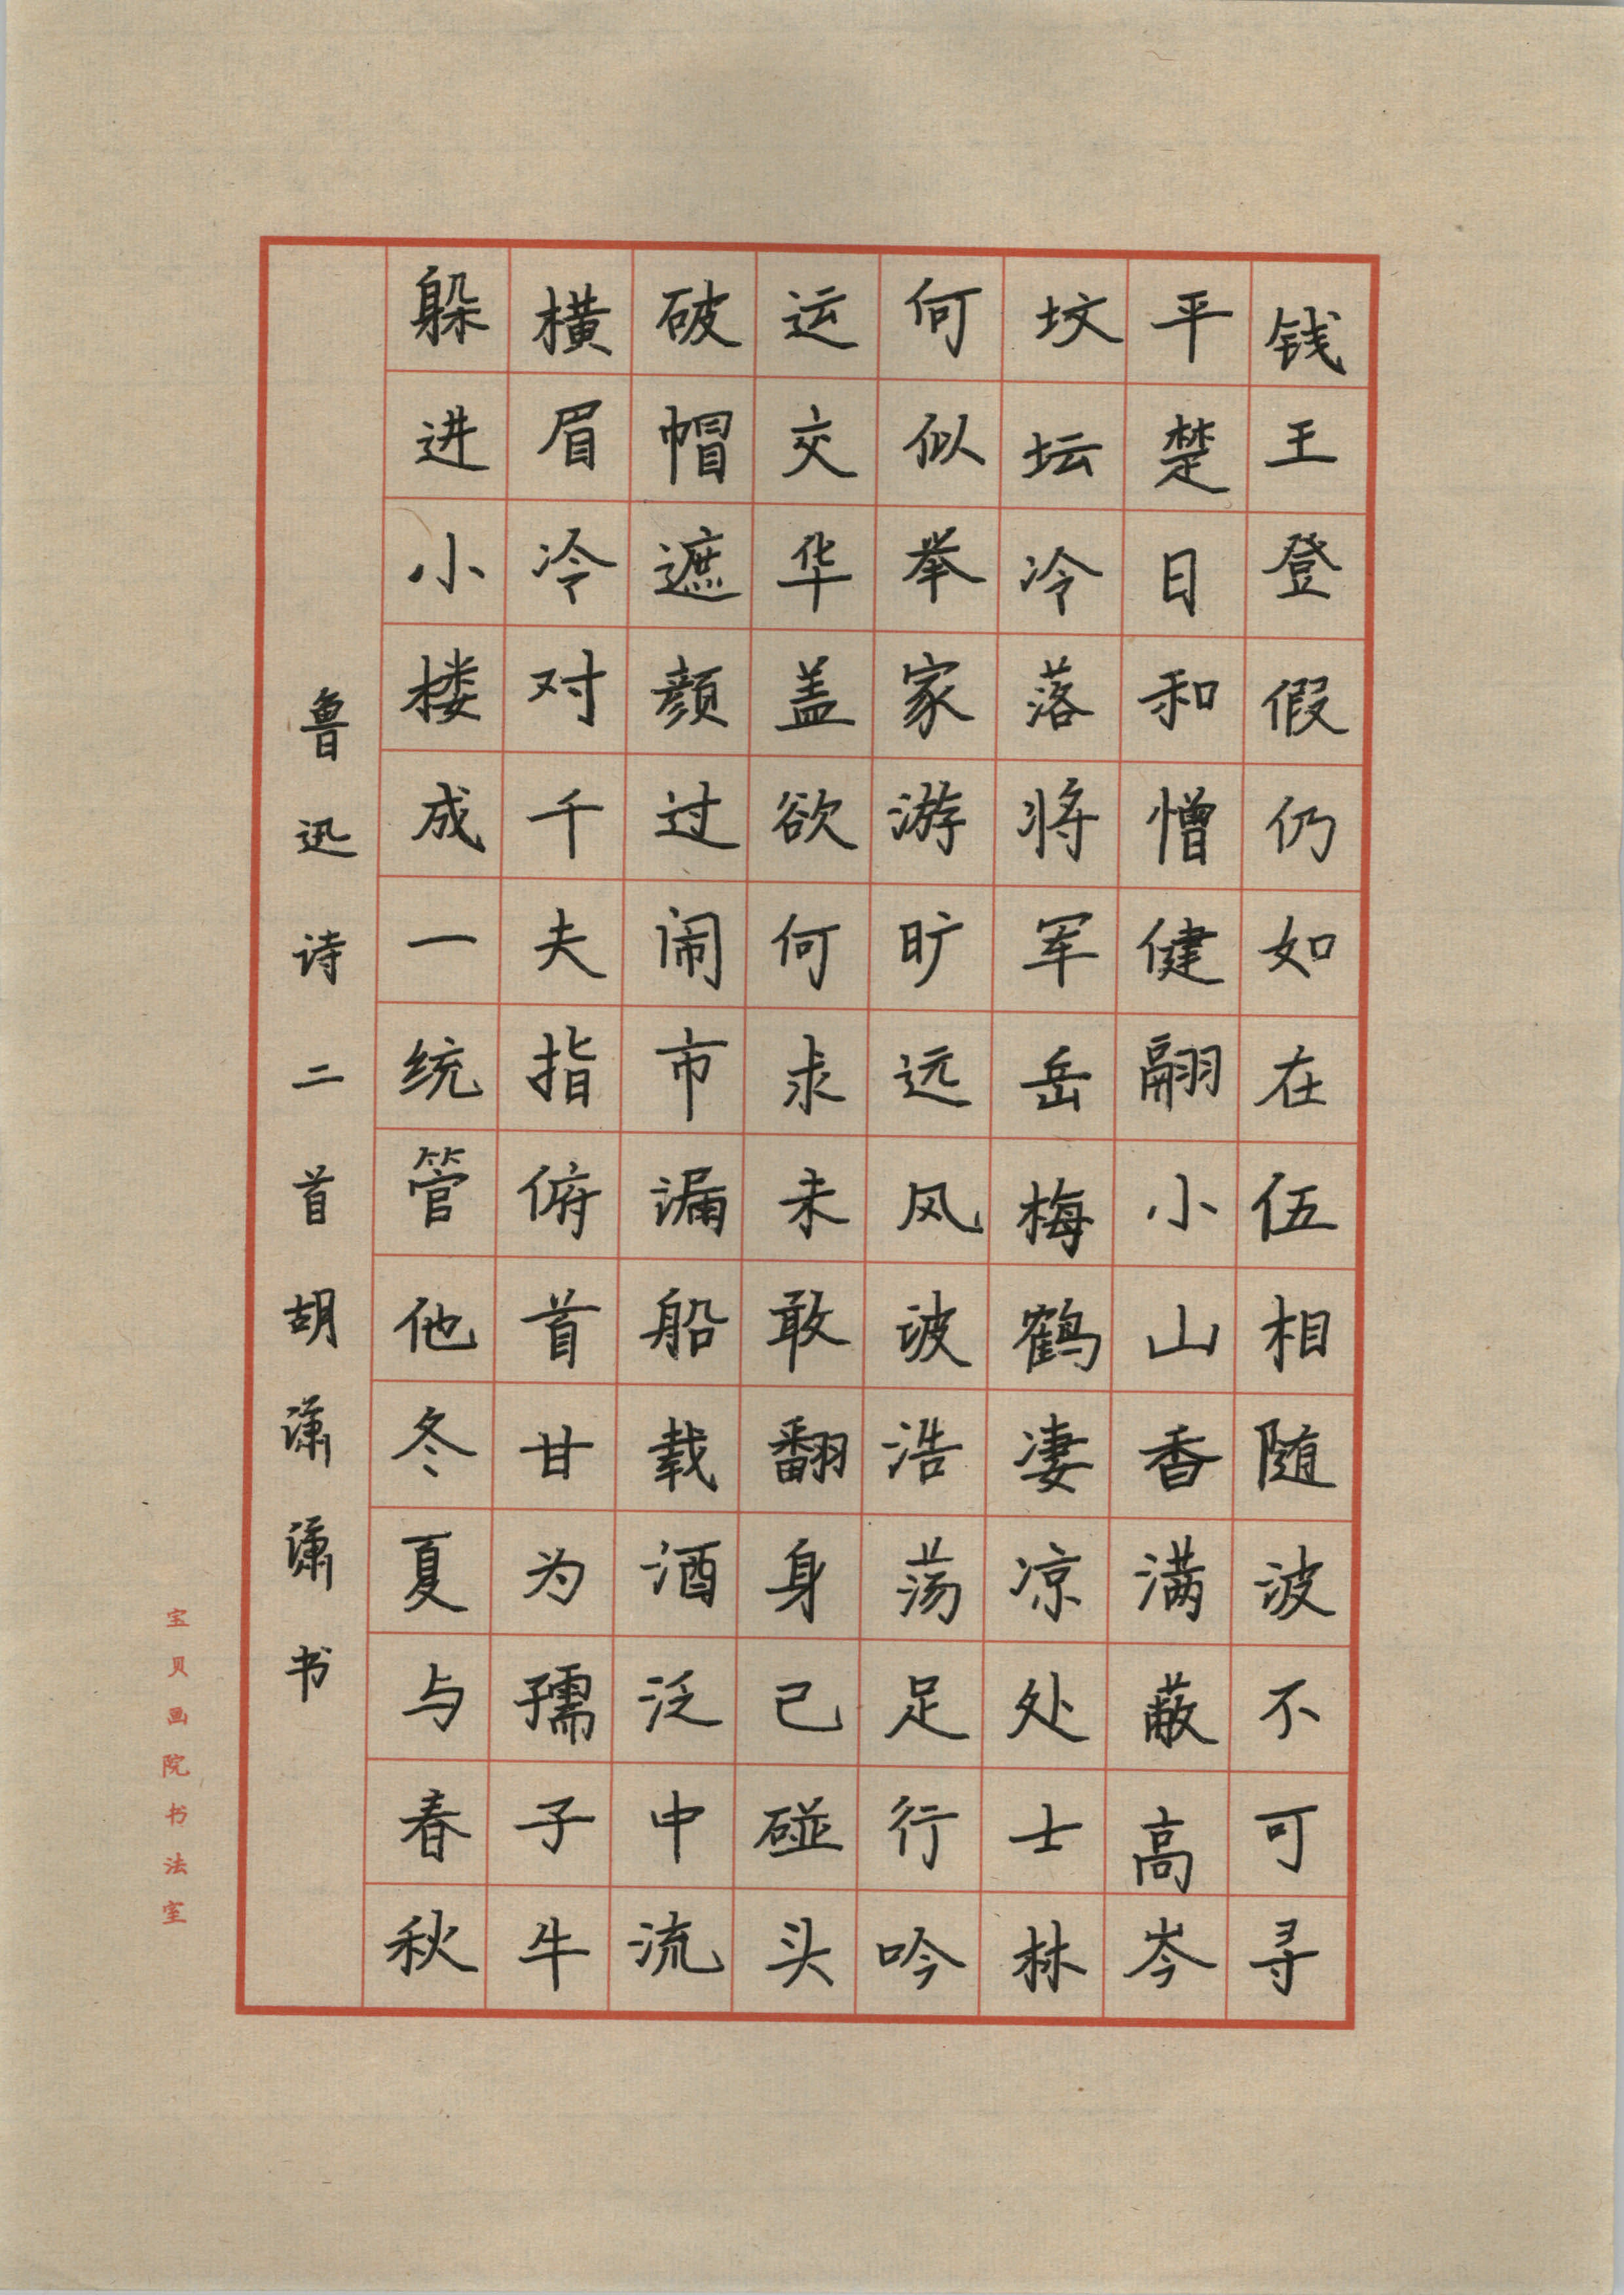 钱王登假仍如在伍相随波不可寻
平楚日和憎健翮小山香满蔽高岑
坟坛冷落将军岳梅鹤凄凉处士林
何似举家游旷远风波浩荡足行吟
运交华盖欲何求未敢翻身已碰头
破帽遮颜过闹市漏船载酒泛中流
横眉冷对千夫指俯首甘为孺子牛
躲进小楼成一统管他冬夏与春秋
鲁迅诗二首胡潇潇书
宝贝画院书法室